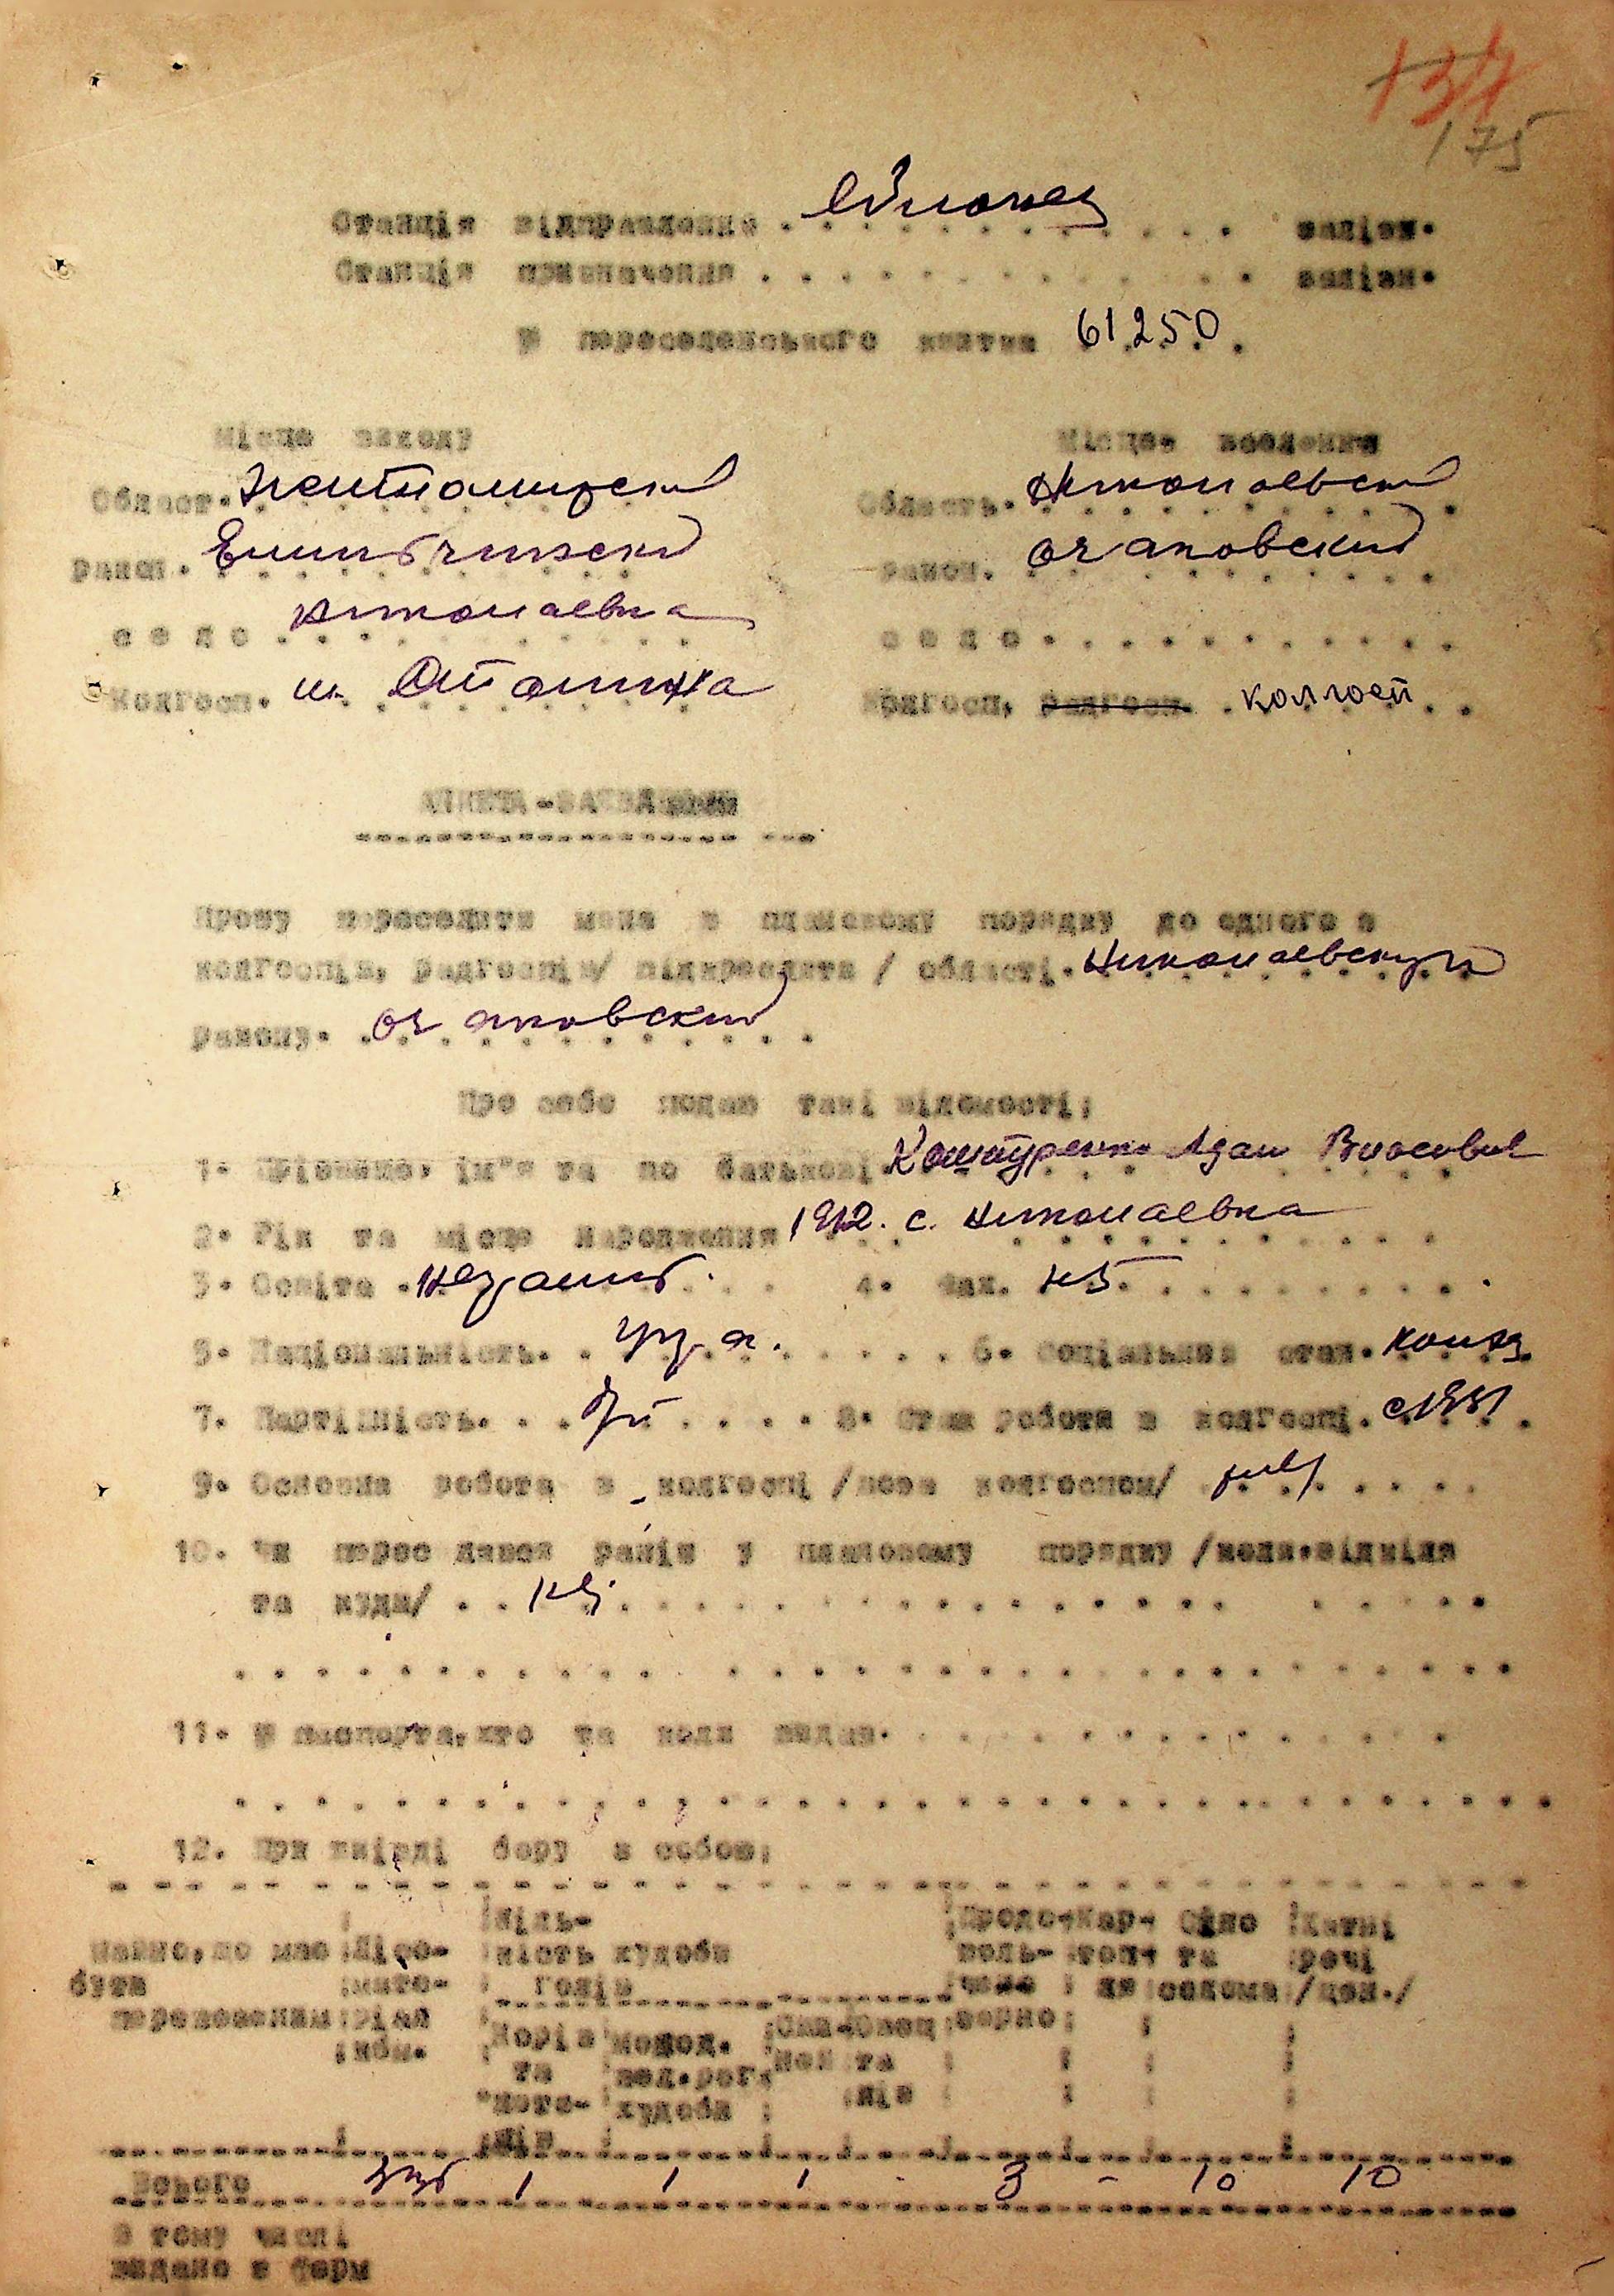 134
175
Станція відправлення . Яблонец . . . залізн.
Станція призначення . . . . . . . . . . . . залізн.
№ переселенського квитка 61250 .
Місце виходу Місце вселення
Област. Житомирский Область. Николаевский
район. Емильчинский район. Очаковский
село . Николаевка село . . . . . . . . . . .
Колгосп. им. Сталина Колгосп, радгосп. . колгосп . .
АНКЕТА-ЗАЯВА
Прошу переселити мене в плановому порядку до одного з
колгоспів, радгоспів/ підкреслити / області. Николаевскую
району. Очаковский . .
Про себе подаю такі відомості;
1. Прізвище, ім"я та по батькові. Адам Власович
2. Рік та місце народження 1912. с. Николаевка
3. Освіта . . . 4. Фах. . . . . . . . . .
5. Національність. . . . . . . . . 6. Соціальний стан.
7. Партійність. . . б/п . . . . 8. Стаж роботи в колгоспі. с 1931
9. Основна робота в колгоспі /поза колгоспом/ . . . .
10. Чи переселявся раніш у плановому порядку /коли, звідкіля
та куди/ . . . . . . . . . . . . . . . . . .
11. № паспорта, хто та коли видав. . . . . . . . . . . . . .
12. При виїзді беру з собою;
Майно, що має бути перевезеним Лісоматеріял кбм. Кількість худоби голів Продовольче зерно Картопля Сіно та солома Хатні речі /цен./
Корів та Молод. вел.рог. худоби Свиней Овець та кіз
Всього 1 1 1 - 3 - 10 10
В тому числі
видано в